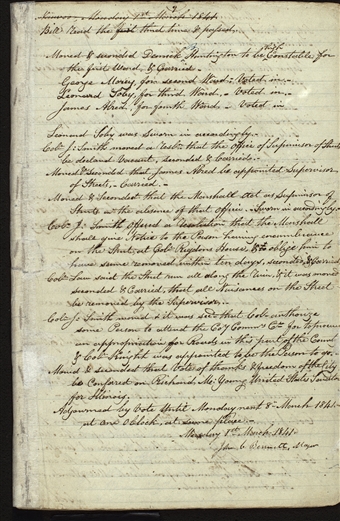 7
Nauvoo, Monday 1st March 1841.
Bill Read the first third time & passed.
Moved & seconded Dimick Huntington to be Constable for
the first Ward, & Carried.
George Morey, for second Ward - Voted in.
Leonard Soby, for third Ward, Voted in.
James Alred, for fourth Ward - Voted in
Leonard Soby was Sworn in accordingly.
Col. J. Smith moved a Resol. that the Office of Supervisor of Streets
be declared Vacant, seconded & Carried.
Moved & Seconded that James Alred be appointed Supervisor
of Streets, Carried.
Moved & Seconded that the Marshall act as Supervisor of
Streets in the absence of that officer, Sworn in accordingly
Col. J. Smith Offered a Resolution that the Marshall
shall give Notice to the Person having
on the Street, at Col. Rigdons House, & to oblige him to
have same removed within ten days, seconded & Carried
Col. Law said the Street run all along the River, & it was moved
seconded & Carried, that all Nusances on the Street
be removed by the Supervisor.
Col. J. Smith moved it was sec. that Col. authorize
some Person to attend the Coy. Comm. Ct. for to procure
an appropriation for Roads in this part of the County
& Col. Knight was appointed to be the Person to go.
Moved & seconded that Vote of thanks & freedom of the City
be Conferred on Richard M. Young United States Senator
for Illinois.
Adjourned by Vote Until Monday next 8 March 1841.
at one OClock, at same place.
Monday 1st March, 1841.
John C Bennett, Mayor